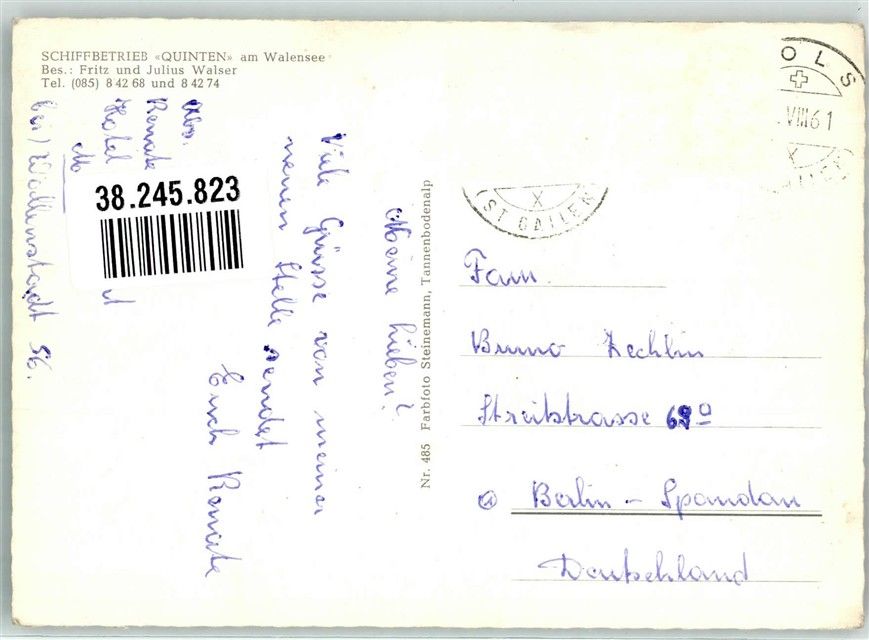 SCHIFFBETRIEB «QUINTEN» am Walensee
Bes.: Fritz und Julius Walser
Tel. (085) 8 42 68 und 8 42 74
Abs.
Renate
Hotel
bei) Wallenstadt SG.
38.245.823
Meine Lieben!
Viele Grüsse von meiner
neuen Stelle sendet
Euch Renate
Nr. 485 Farbfoto Steinemann, Tannenbodenalp
OLS
VIII 61
X
(ST. GALLEN)
X
Fam.
Bruno Zechlin
Streitstrasse 69a
Berlin - Spandau
Deutschland